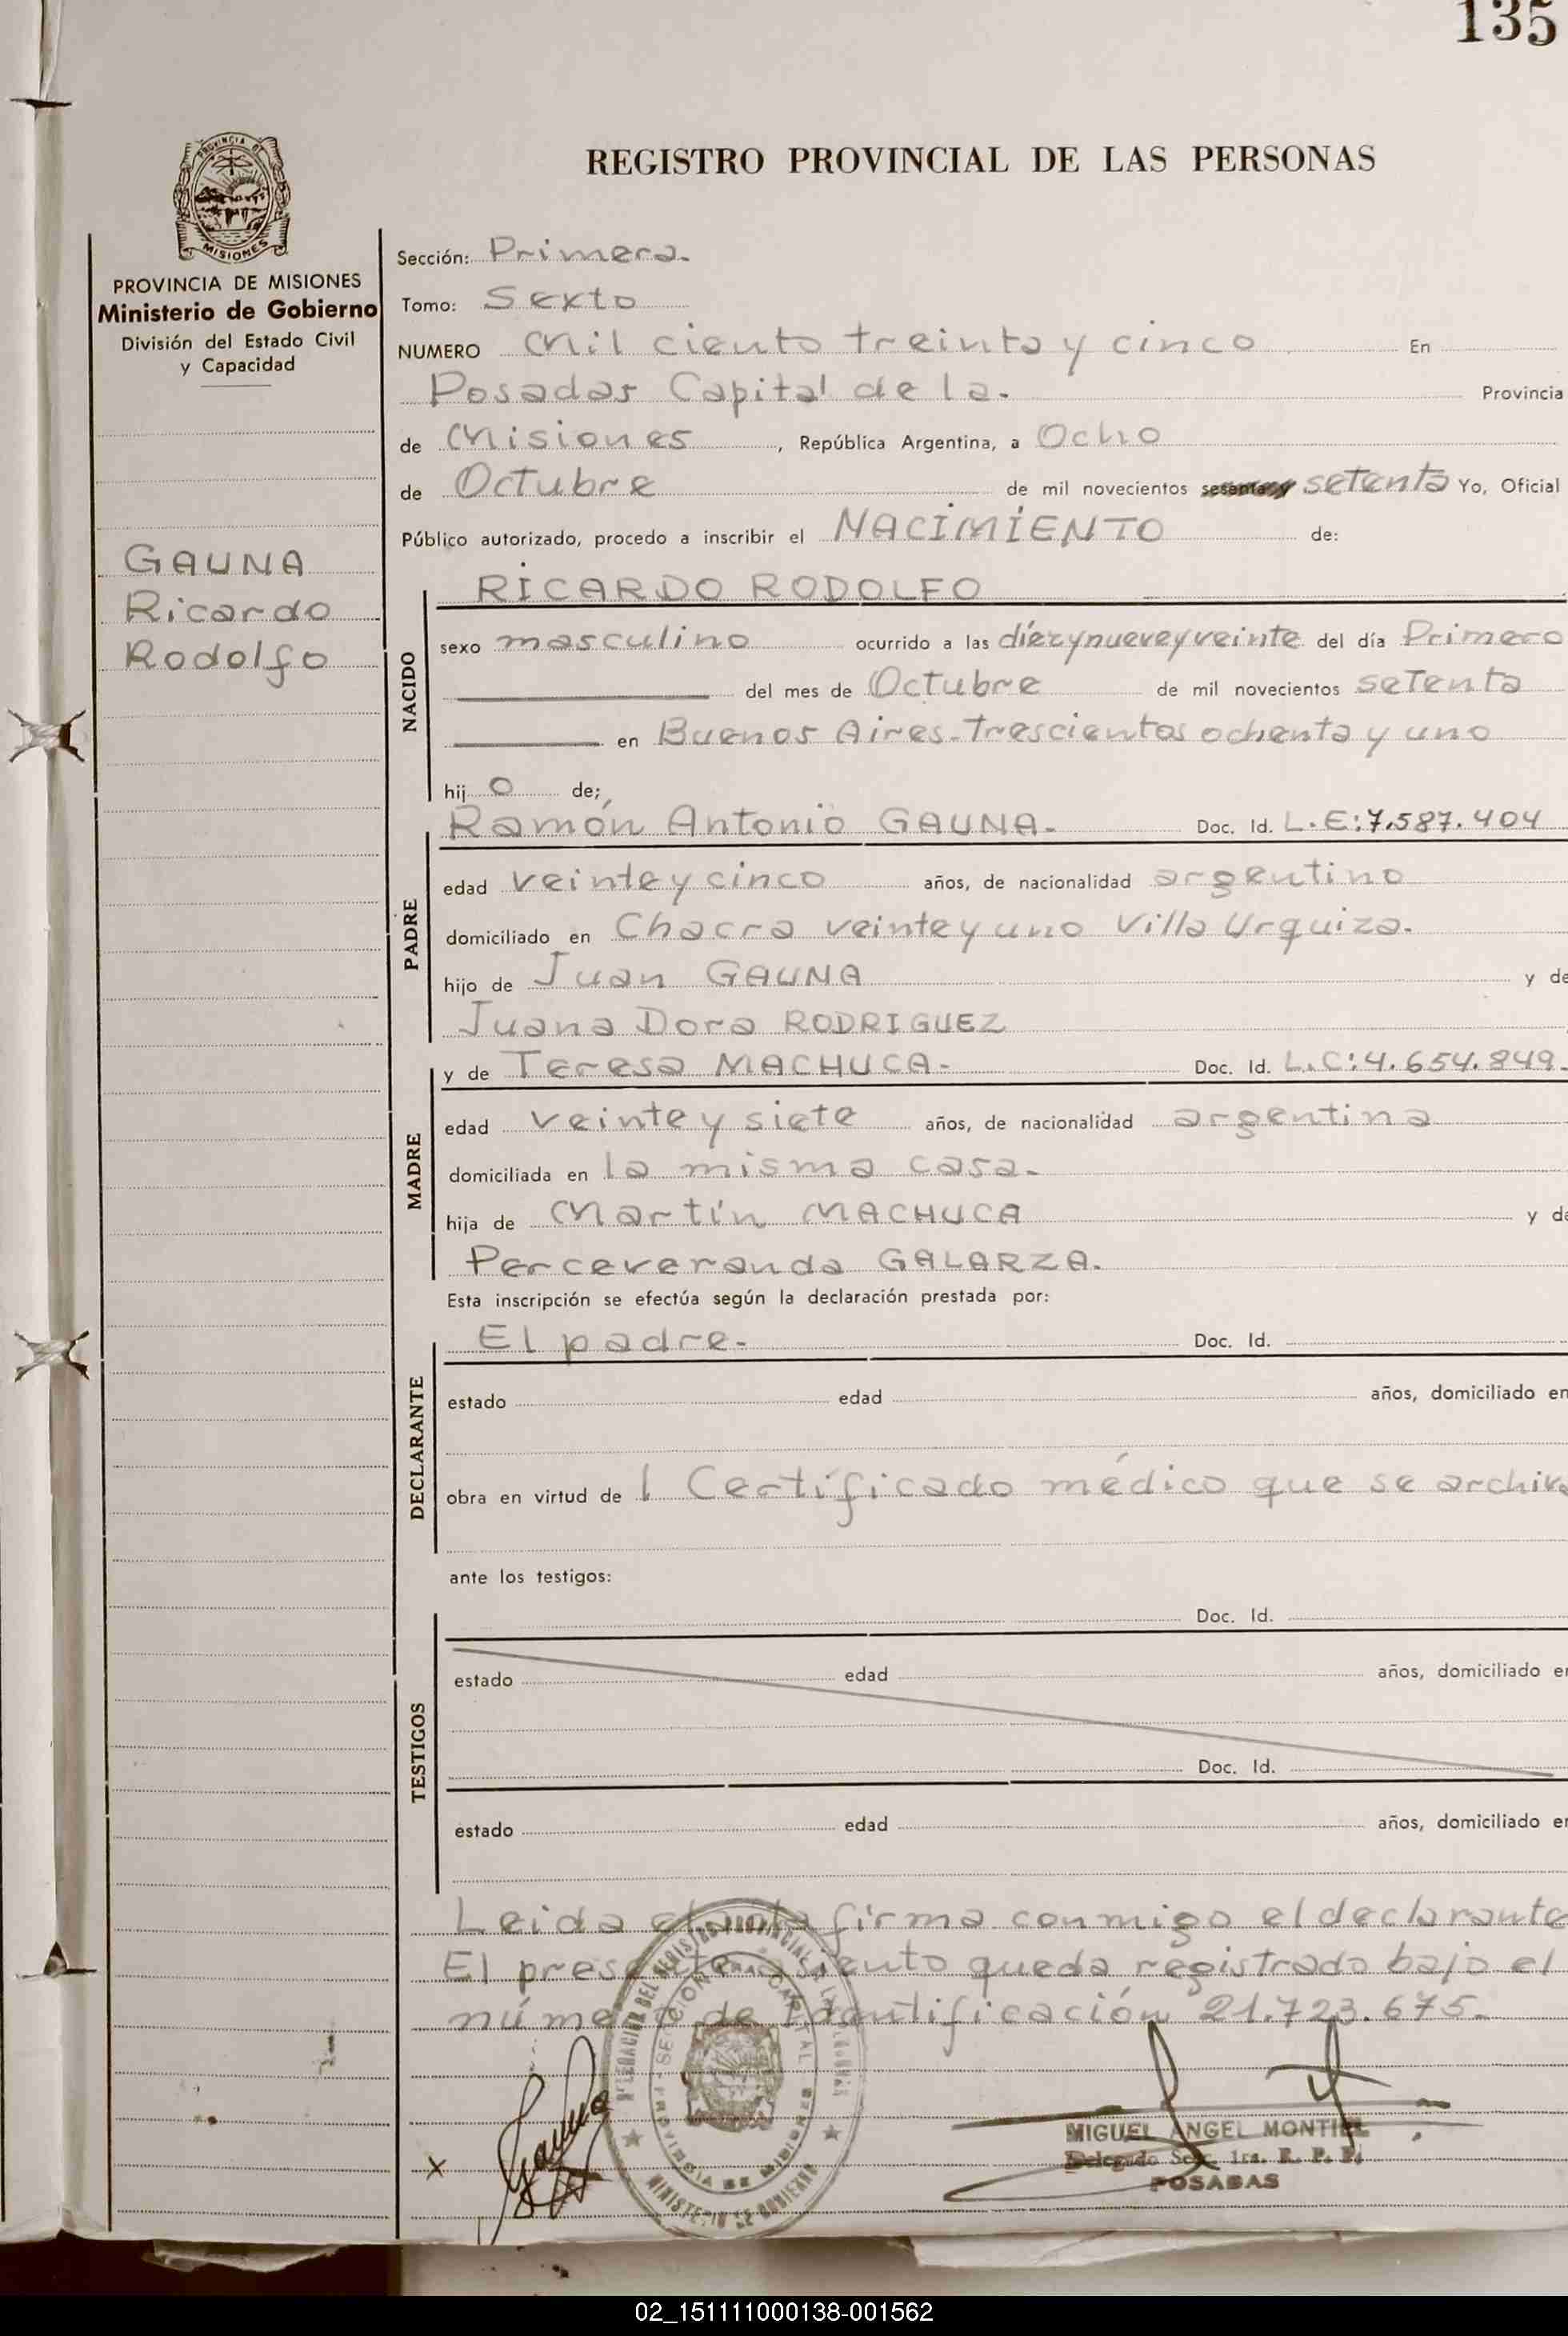 135
PROVINCIA DE
MISIONES
REGISTRO PROVINCIAL DE LAS PERSONAS
PROVINCIA DE MISIONES
Ministerio de Gobierno
División del Estado Civil
y Capacidad
GAUNA
Ricardo
Rodolfo
Sección: Primera.
Tomo: Sexto
NUMERO Mil ciento treinta y cinco En
Posadas Capital de la. Provincia
de Misiones, República Argentina, a Ocho
de Octubre de mil novecientos sesenta y setenta Yo, Oficial
Público autorizado, procedo a inscribir el NACIMIENTO de:
NACIDO
RICARDO RODOLFO
sexo masculino ocurrido a las diezynueveyveinte del día Primero
del mes de Octubre de mil novecientos setenta
en Buenos Aires-Trescientos ochenta y uno
hij o de;
PADRE
Ramón Antonio GAUNA. Doc. Id. L.E:7.587.404
edad veinte y cinco años, de nacionalidad argentino
domiciliado en Chacra veinte y uno Villa Urquiza.
hijo de Juan GAUNA y de
Juana Dora RODRIGUEZ
MADRE
y de Teresa MACHUCA. Doc. Id. L.C:4.654.849.
edad veinte y siete años, de nacionalidad argentina
domiciliada en la misma casa.
hija de Martín MACHUCA y de
Perceveranda GALARZA.
Esta inscripción se efectúa según la declaración prestada por:
DECLARANTE
El padre. Doc. Id.
estado edad años, domiciliado en
obra en virtud de l Certificado médico que se archiva
ante los testigos:
TESTIGOS
Doc. Id.
estado edad años, domiciliado en
Doc. Id.
estado edad años, domiciliado en
Leida el acta firma conmigo el declarante
El presente asiento queda registrado bajo el
número de Identificación 21.723.675.
DELEGACION DEL REGISTRO PROVINCIAL DE LAS PERSONAS
SECCION CAPITAL
PROVINCIA DE MISIONES
MINISTERIO DE GOBIERNO
x Gauna
MIGUEL ANGEL MONTIEL
Delegado Sec. 1ra. R. P. P.
POSADAS
02_151111000138-001562